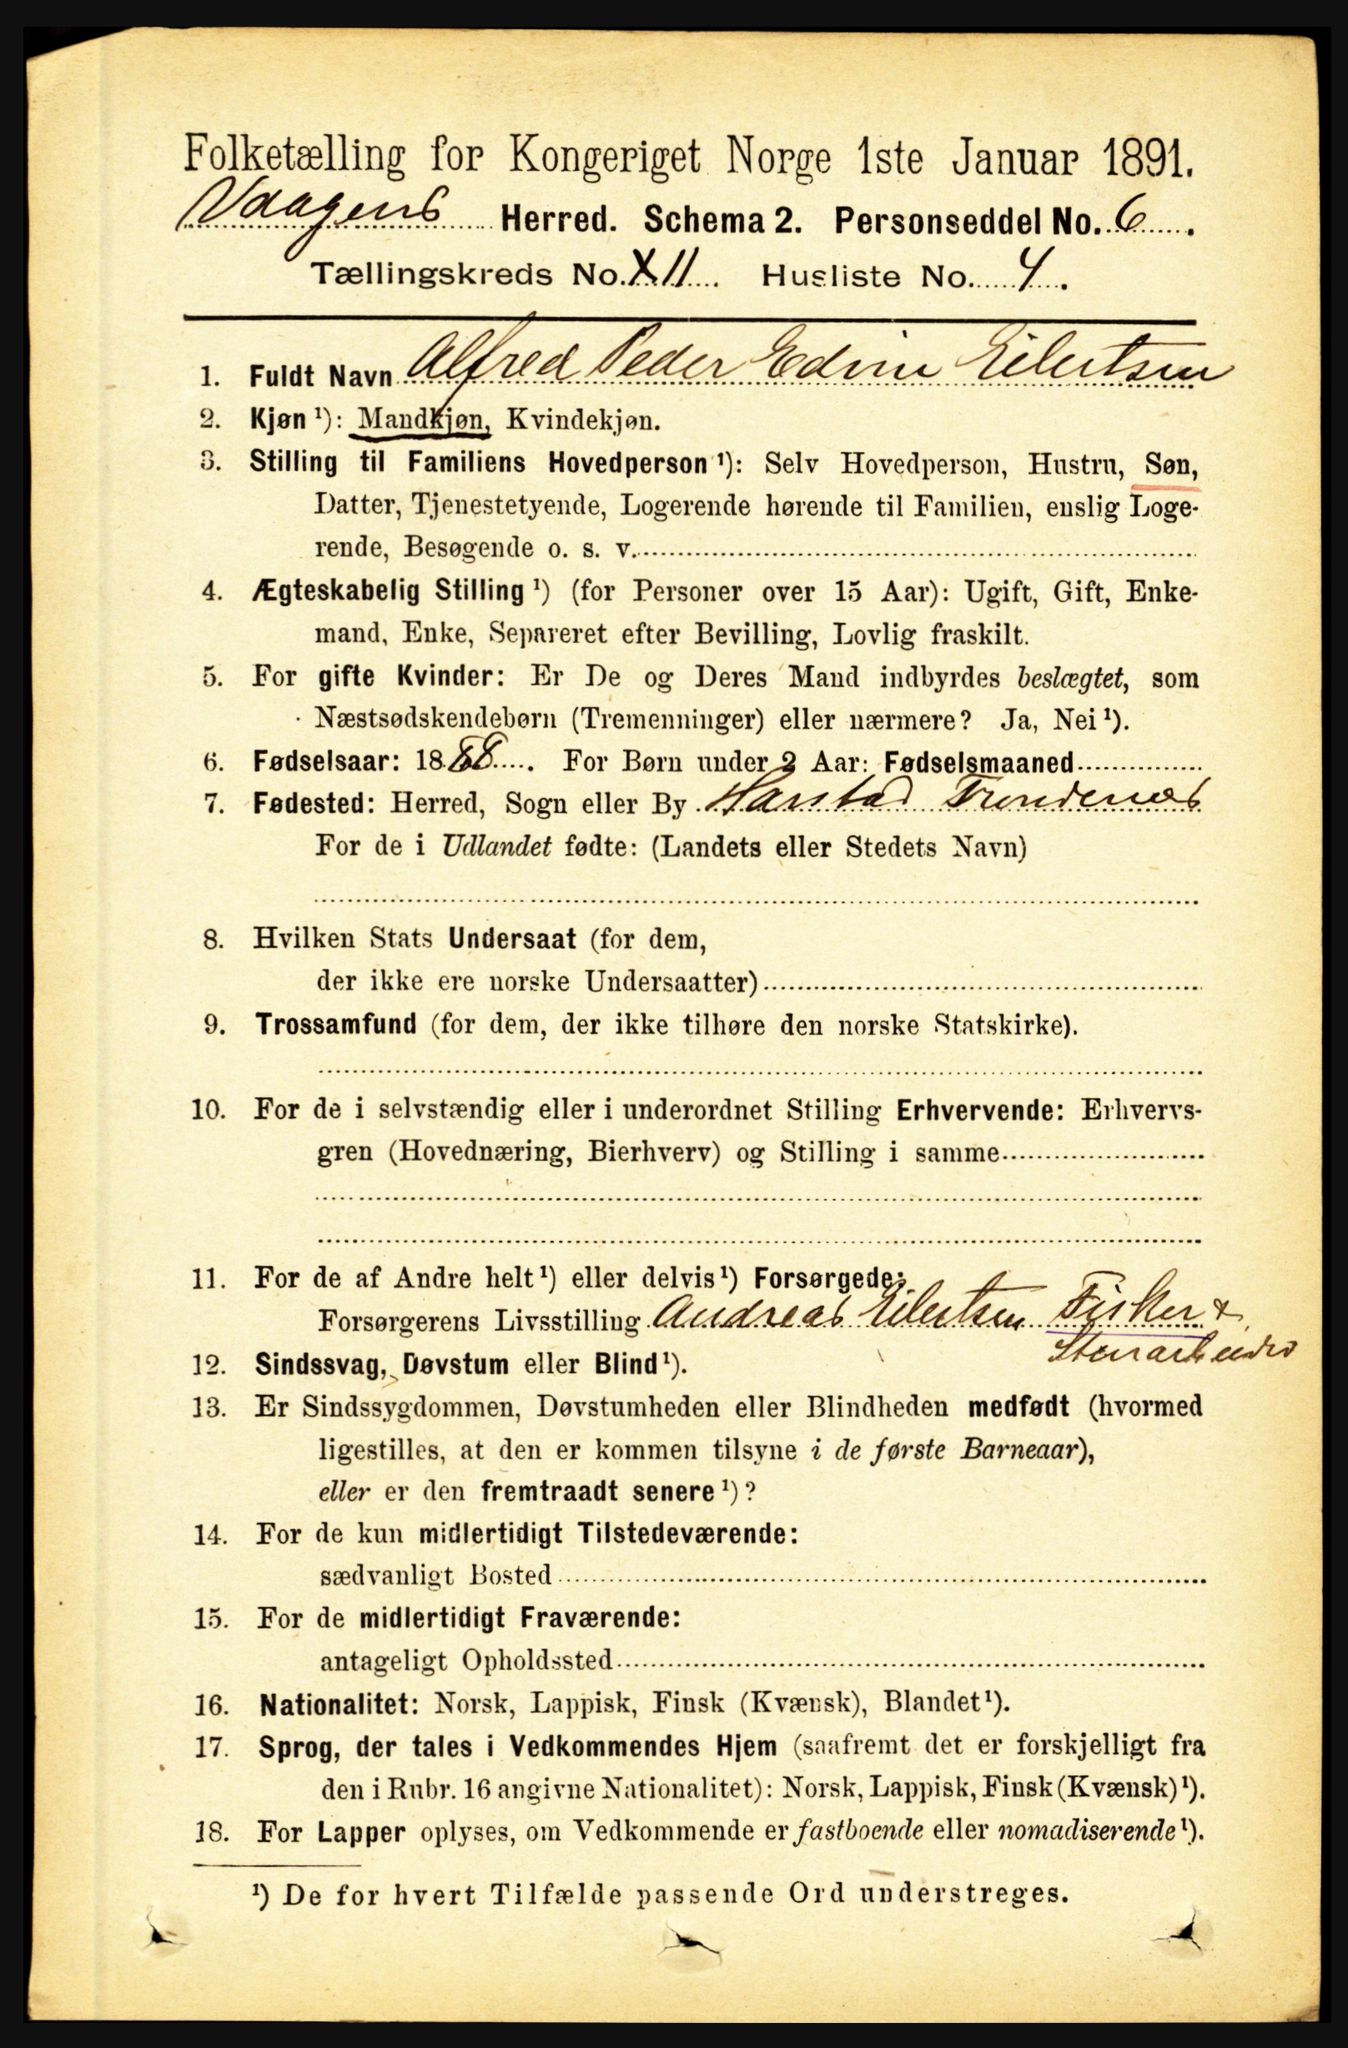 Folketælling for Kongeriget Norge 1ste Januar 1891.
Vaagens Herred. Schema 2. Personseddel No. 6.
Tællingskreds No. XII. Husliste No. 4.
1. Fuldt Navn Alfred Peder Edvin Eilertsen
2. Kjøn ¹): Mandkjøn, Kvindekjøn.
3. Stilling til Familiens Hovedperson ¹): Selv Hovedperson, Hustru, Søn,
Datter, Tjenestetyende, Logerende hørende til Familien, enslig Loge-
rende, Besøgende o. s. v.
4. Ægteskabelig Stilling ¹) (for Personer over 15 Aar): Ugift, Gift, Enke-
mand, Enke, Separeret efter Bevilling, Lovlig fraskilt.
5. For gifte Kvinder: Er De og Deres Mand indbyrdes beslægtet, som
Næstsødskendebørn (Tremenninger) eller nærmere? Ja, Nei ¹).
6. Fødselsaar: 1888. For Børn under 2 Aar: Fødselsmaaned
7. Fødested: Herred, Sogn eller By Harstad Trondenæs
For de i Udlandet fødte: (Landets eller Stedets Navn)
8. Hvilken Stats Undersaat (for dem,
der ikke ere norske Undersaatter)
9. Trossamfund (for dem, der ikke tilhøre den norske Statskirke).
10. For de i selvstændig eller i underordnet Stilling Erhvervende: Erhvervs-
gren (Hovednæring, Bierhverv) og Stilling i samme
11. For de af Andre helt ¹) eller delvis ¹) Forsørgede:
Forsørgerens Livsstilling Andreas Eilertsen Fisker &
Stenarbeider
12. Sindssvag, Døvstum eller Blind ¹).
13. Er Sindssygdommen, Døvstumheden eller Blindheden medfødt (hvormed
ligestilles, at den er kommen tilsyne i de første Barneaar),
eller er den fremtraadt senere ¹)?
14. For de kun midlertidigt Tilstedeværende:
sædvanligt Bosted
15. For de midlertidigt Fraværende:
antageligt Opholdssted
16. Nationalitet: Norsk, Lappisk, Finsk (Kvænsk), Blandet ¹).
17. Sprog, der tales i Vedkommendes Hjem (saafremt det er forskjelligt fra
den i Rubr. 16 angivne Nationalitet): Norsk, Lappisk, Finsk (Kvænsk) ¹).
18. For Lapper oplyses, om Vedkommende er fastboende eller nomadiserende ¹).
¹) De for hvert Tilfælde passende Ord understreges.